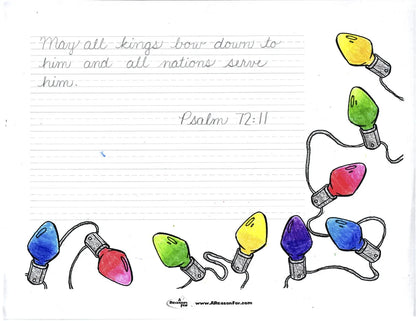 May all kings bow down to
him and all nations serve
him.
Psalm 72:11
A Reason For www.AReasonFor.com